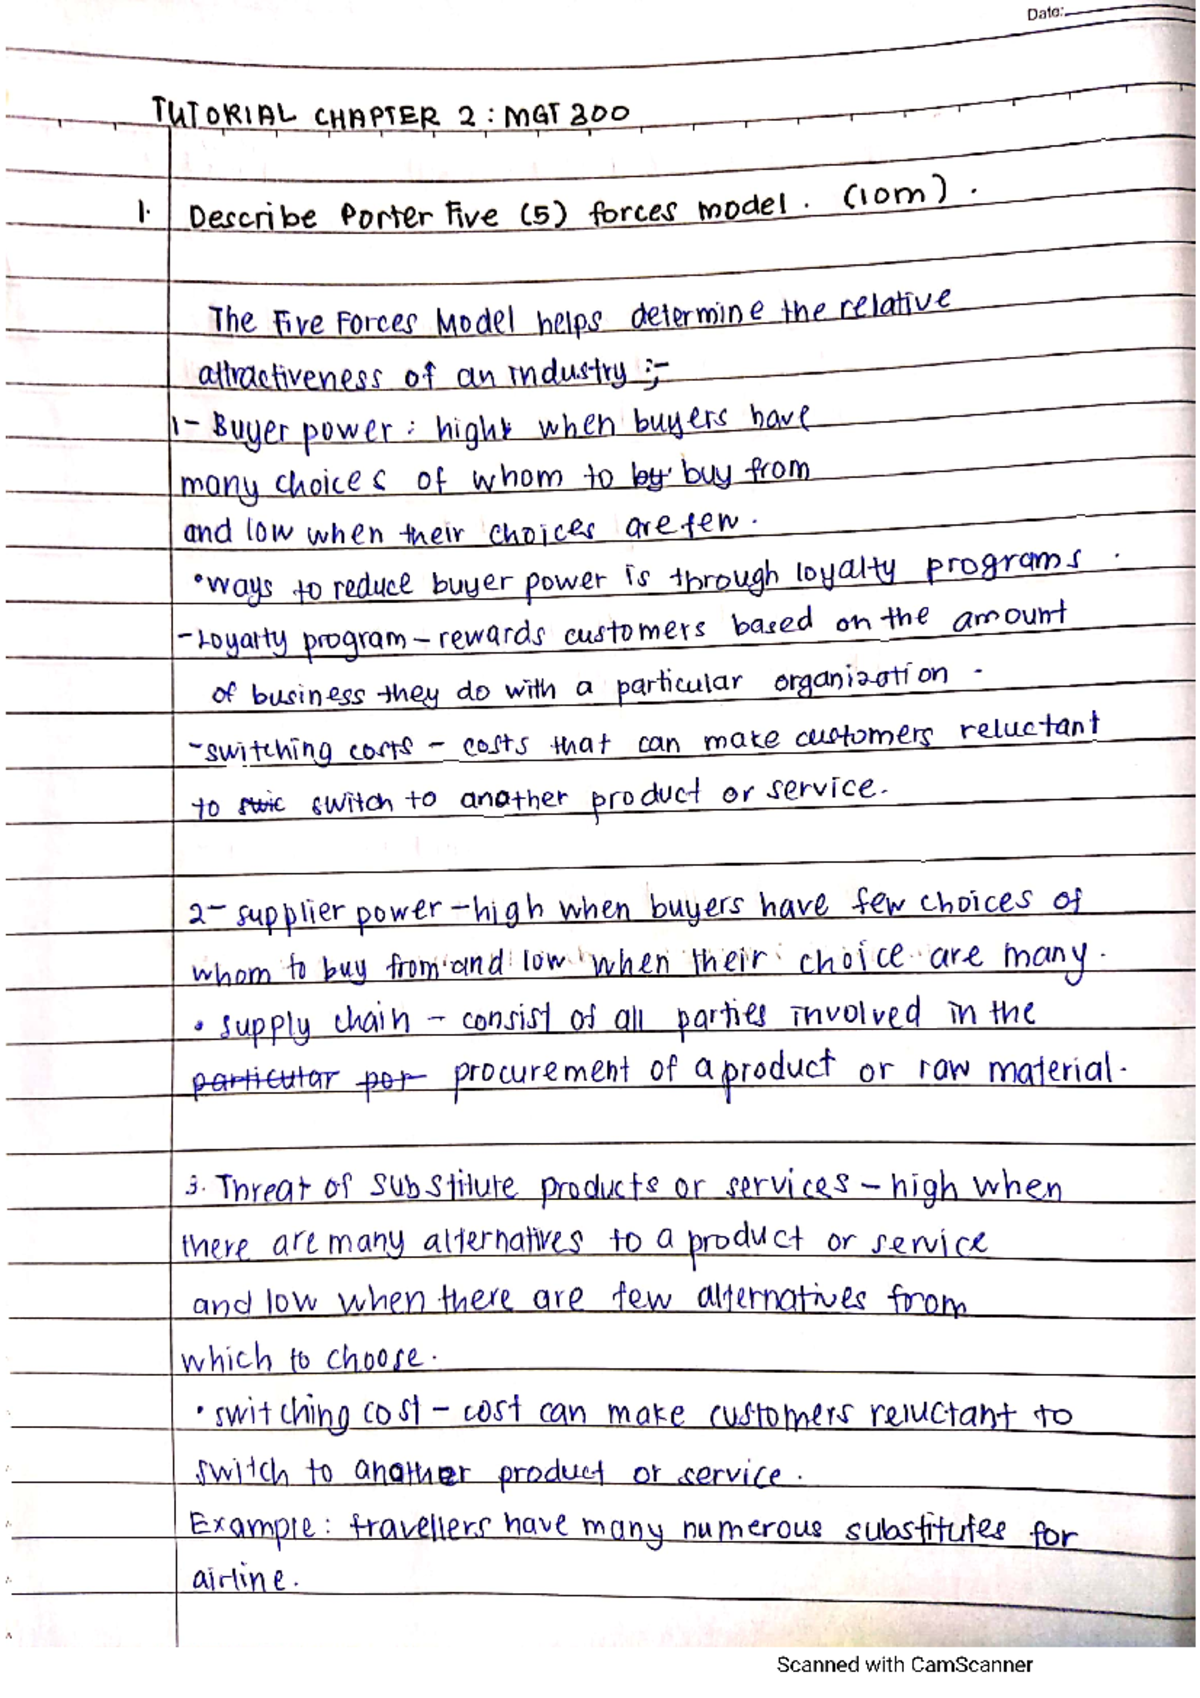 Date:
TUTORIAL CHAPTER 2 : MGT 300
1. Describe Porter Five (5) forces model. (10m).
The Five Forces Model helps determine the relative
attractiveness of an industry :-
1- Buyer power : high when buyers have
many choices of whom to by buy from
and low when their choices are few.
• ways to reduce buyer power is through loyalty programs.
- Loyalty program - rewards customers based on the amount
of business they do with a particular organization.
- switching costs - costs that can make customers reluctant
to swic switch to another product or service.
2- supplier power - high when buyers have few choices of
whom to buy from and low when their choice are many.
• supply chain - consist of all parties involved in the
particular por procurement of a product or raw material.
3. Threat of substitute products or services - high when
there are many alternatives to a product or service
and low when there are few alternatives from
which to choose.
• switching cost - cost can make customers reluctant to
switch to another product or service.
Example : travellers have many numerous substitutes for
airline.
Scanned with CamScanner